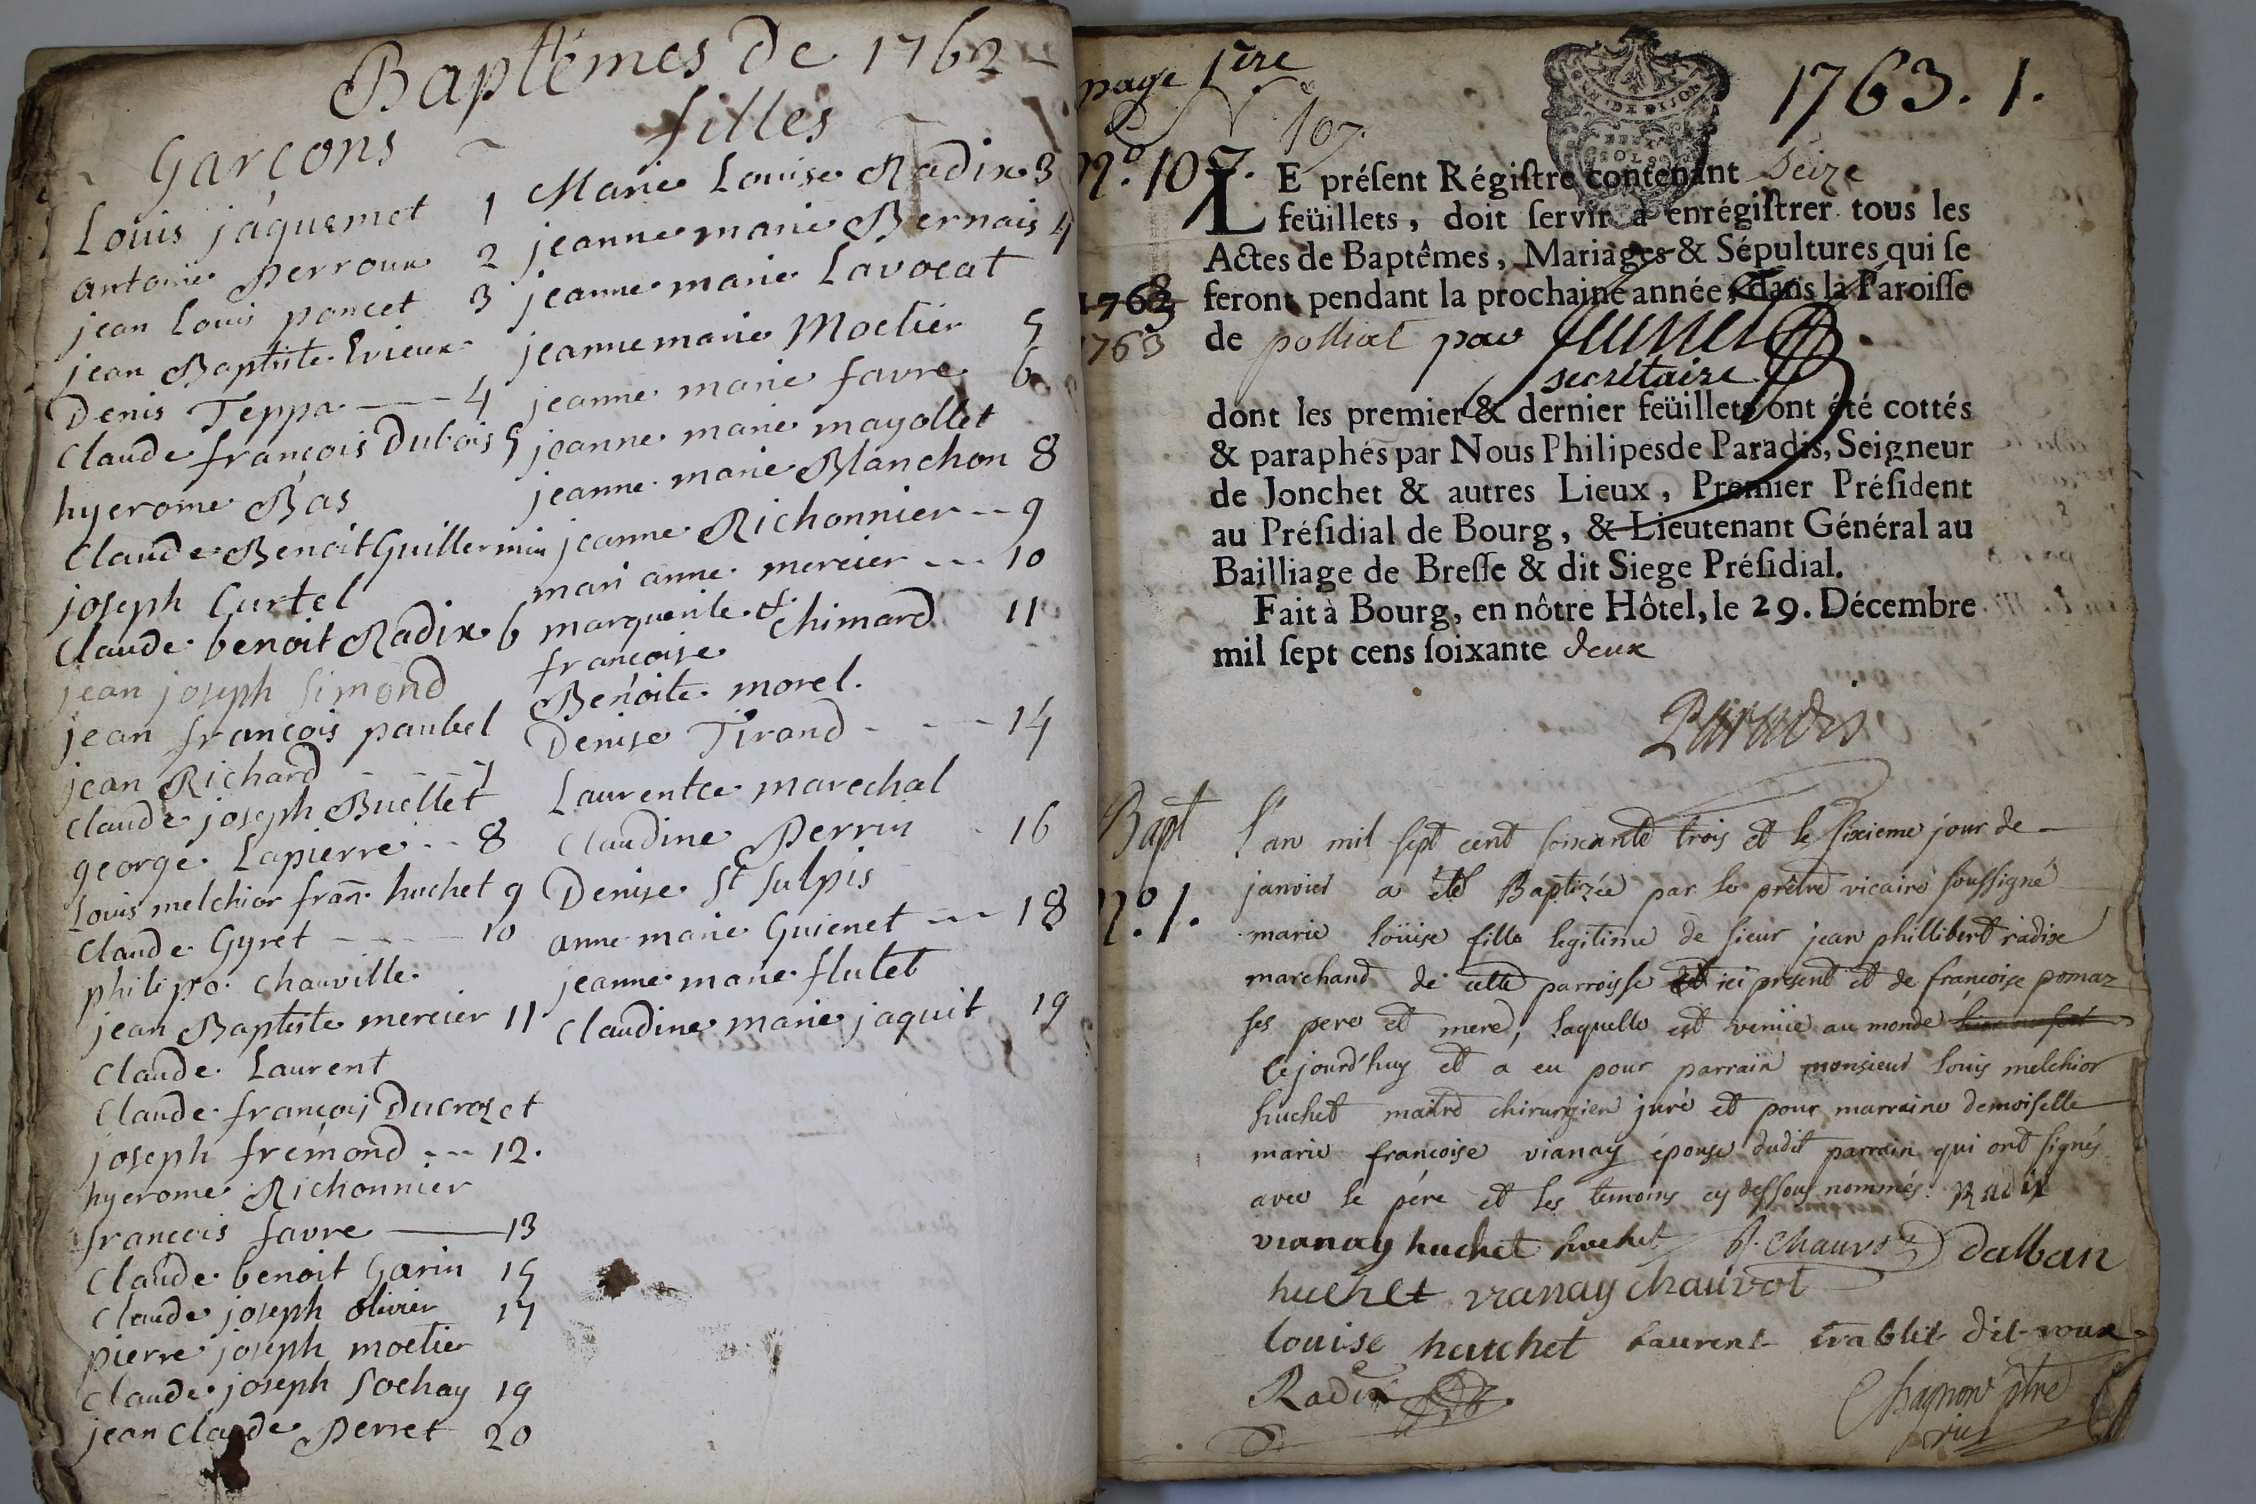 Baptêmes de 1762
Garçons
Louis jaquemet 1
antoine perroux 2
jean Louis poncet 3
jean Baptiste Evieux
Denis Teppa 4
Claude françois Dubois 5
hyerome Bas
Claude Benoit Guillermin
joseph Curtel
Claude benoit Radix 6
jean joseph Simond
jean françois paubel
jean Richard
Claude joseph Buellet
george Lapierre 8
Louis melchior fran. huchet 9
Claude Gyret 10
philipe chauville
jean Baptiste mercier 11
Claude Laurent
Claude françois Ducrozet
joseph frémond 12.
hyerome Richonnier
francois favre 13
Claude benoit Garin 15
Claude joseph olivier 17
pierre joseph moelier
Claude joseph Sochay 19
jean Claude perret 20
filles
Marie Louise Radix 3
jeanne marie Bernais 4
jeanne marie Lavocat
jeanne marie Moelier 5
jeanne marie favre 6
jeanne marie mayollet
jeanne marie Blanchon 8
jeanne Richonnier 9
mari anne mercier 10
marguerite &
françoise chimard 11
Benoite morel.
Denise Tirand 14
Laurentce marechal
Claudine perrin 16
Denise St Sulpis
anne marie Guienet 18
jeanne marie flutet
Claudine marie jaquit 19
page 1ère
1763. 1.
107.
N.º 107.
LE préſent Régiſtre contenant Seize
feüillets, doit ſervir à enrégiſtrer tous les
Actes de Baptêmes, Mariages & Sépultures qui ſe
feront pendant la prochaine année, dans la Paroiſſe
1763
de polliat par
secrétaire
dont les premier & dernier feüillets ont été cottés
& paraphés par Nous Philipes de Paradis, Seigneur
de Jonchet & autres Lieux, Premier Préſident
au Préſidial de Bourg, & Lieutenant Général au
Bailliage de Breſſe & dit Siege Préſidial.
Fait à Bourg, en nôtre Hôtel, le 29. Décembre
mil ſept cens ſoixante deux
Paradis
Bapt
n.º 1.
L'an mil sept cent soixante trois et le sixieme jour de
janvier a été Baptizée par le prêtre vicaire soussigné
marie loüise fille legitime de sieur jean phillibert radix
marchand de cette parroisse ici present et de françoise pomaz
ses pere et mere, laquelle est venüe au monde
cejourd'huy et a eu pour parrain monsieur louis melchior
huchet maitre chirurgien juré et pour marraine demoiselle
marie francoise vianay épouse dudit parrain qui ont signés
avec le pére et les temoins cy dessous nommés. Radix
vianay huchet huchet chauvot dalban
huchet vianay chauvot
louise huchet Laurent trablit dit roux
Radix
Chagnon ptre
vic